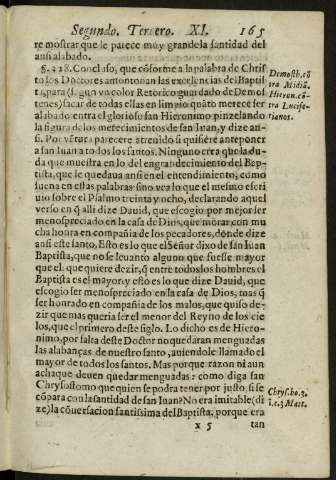 Segundo. Tercero. XI. 165
re mostrar que le parece muy grande la santidad del
ansi alabado.
§. 218. Concluso, que cõforme a la palabra de Chris
to los Doctores amontonan las excelencias del Baptis
ta, para (segun vn color Retorico guardado de Demos
tenes) sacar de todas ellas en limpio quãto merece ser
alabado: entra el glorioso san Hieronimo pinzelando
la figura de los merecimientos de san Iuan, y dize an-
si. Por vētura parecere atreuido si quisiere anteponer
a san Iuan a todos los santos. Ninguno crea que la du-
da que muestra en lo del engrandecimiento del Bap-
tista, que le quedaua ansi en el entendimiento, como
suena en estas palabras: sino vea lo que el mesmo escri
uio sobre el Psalmo treinta y ocho, declarando aquel
verso en q̃ alli dize Dauid, que escogio por mejor ser
menospreciado en la casa de Dios, que morar con mu
cha honra en compañia de los pecadores, donde dize
ansi este santo. Esto es lo que el Señor dixo de san Iuan
Baptista, que no se leuanto alguno que fuesse mayor
que el. que quiere dezir, q̃ entre todos los hombres el
Baptista es el mayor: y esto es lo que dize Dauid, que
escogio ser menospreciado en la casa de Dios, mas q̃
ser honrado en compañia de los malos, que quiso de-
zir que mas queria ser el menor del Reyno de los cie
los, que el primero deste siglo. Lo dicho es de Hiero-
nimo, por falta deste Doctor no quedaran menguadas
las alabanças de nuestro santo, auiendole llamado el
mayor de todos los santos. Mas porque razon ni aun
achaque deuen quedar menguadas: como diga san
Chrysostomo que quien se podra tener por justo, si se
cõpara con la santidad de san Iuan? No era imitable (di
ze) la cõuersacion santissima del Baptista, porque era
x 5 tan
Demosth. cõ
tra Midiã.
Hieron. cõ-
tra Lucife-
rianos.
Chrys. ho. 3.
in. c. 3. Matt.